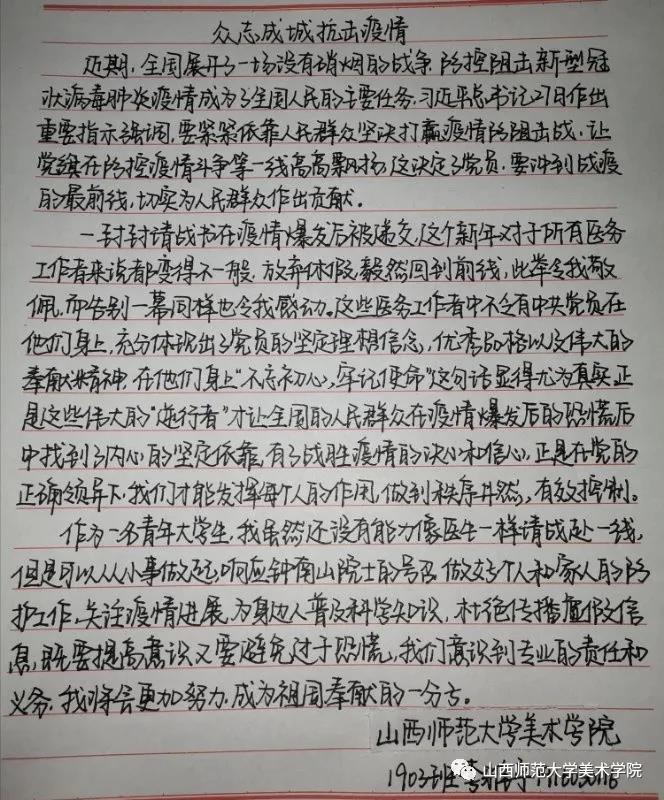 众志成城抗击疫情
近期,全国展开了一场没有硝烟的战争,防控阻击新型冠
状病毒肺炎疫情成为了全国人民的主要任务,习近平总书记27日作出
重要指示强调,要紧紧依靠人民群众坚决打赢疫情防阻击战,让
党旗在防控疫情斗争第一线高高飘扬,这决定了党员,要冲到战疫
的最前线,切实为人民群众作出贡献。
一封封请战书在疫情爆发后被递交,这个新年对于所有医务
工作者来说都变得不一般,放弃休假,毅然回到前线,此举令我敬
佩,而告别一幕同样也令我感动。这些医务工作者中不乏有中共党员在
他们身上,充分体现出了党员的坚定理想信念,优秀品格以及伟大的
奉献精神,在他们身上“不忘初心,牢记使命”这句话显得尤为真实,正
是这些伟大的“逆行者”才让全国的人民群众在疫情爆发后的恐慌后
中找到了内心的坚定依靠,有了战胜疫情的决心和信心,正是在党的
正确领导下,我们才能发挥每个人的作用,做到秩序井然,有效控制。
作为一名青年大学生,我虽然还没有能力像医生一样请战赴一线,
但是可以从小事做起,响应钟南山院士的号召,做好个人和家人的防
护工作,关注疫情进展,为身边人普及科学知识,杜绝传播虚假信
息,既要提高意识又要避免过于恐慌,我们意识到专业的责任和
义务,我将会更加努力,成为祖国奉献的一分子。
山西师范大学美术学院
1903班
山西师范大学美术学院